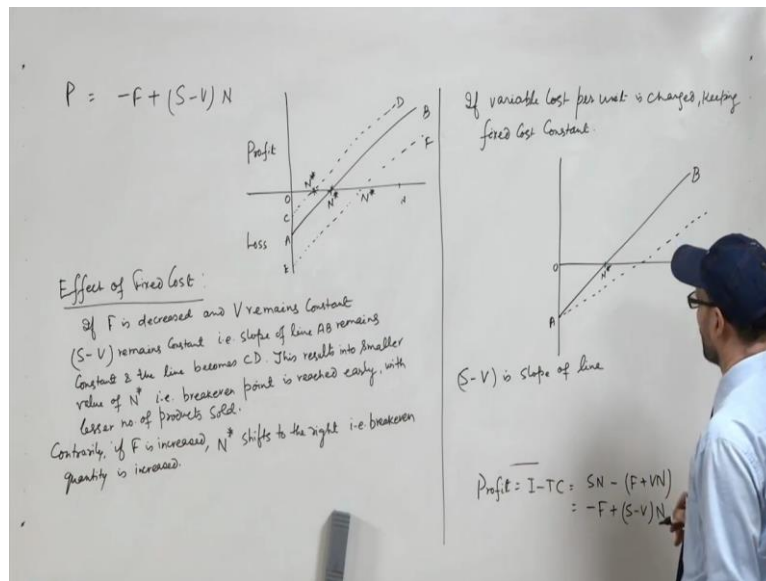 P = -F + (S-V) N
Profit
Loss
D
B
F
N*
N*
N*
O
C
A
E
Effect of Fixed Cost :
If F is decreased and V remains Constant
(S-V) remains Constant i.e. slope of line AB remains
Constant & the line becomes CD. This results into smaller
value of N* i.e. breakeven point is reached early, with
lesser no. of products sold.
Contrarily, if F is increased, N* shifts to the right i.e. breakeven
quantity is increased.
If variable Cost per unit is changed, keeping
fixed Cost Constant.
B
O
N*
A
(S-V) is slope of line
Profit = I-TC = SN - (F+VN)
= -F + (S-V)N